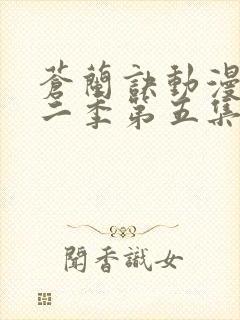 蒼蘭訣動漫
二季第五集
聞香識女